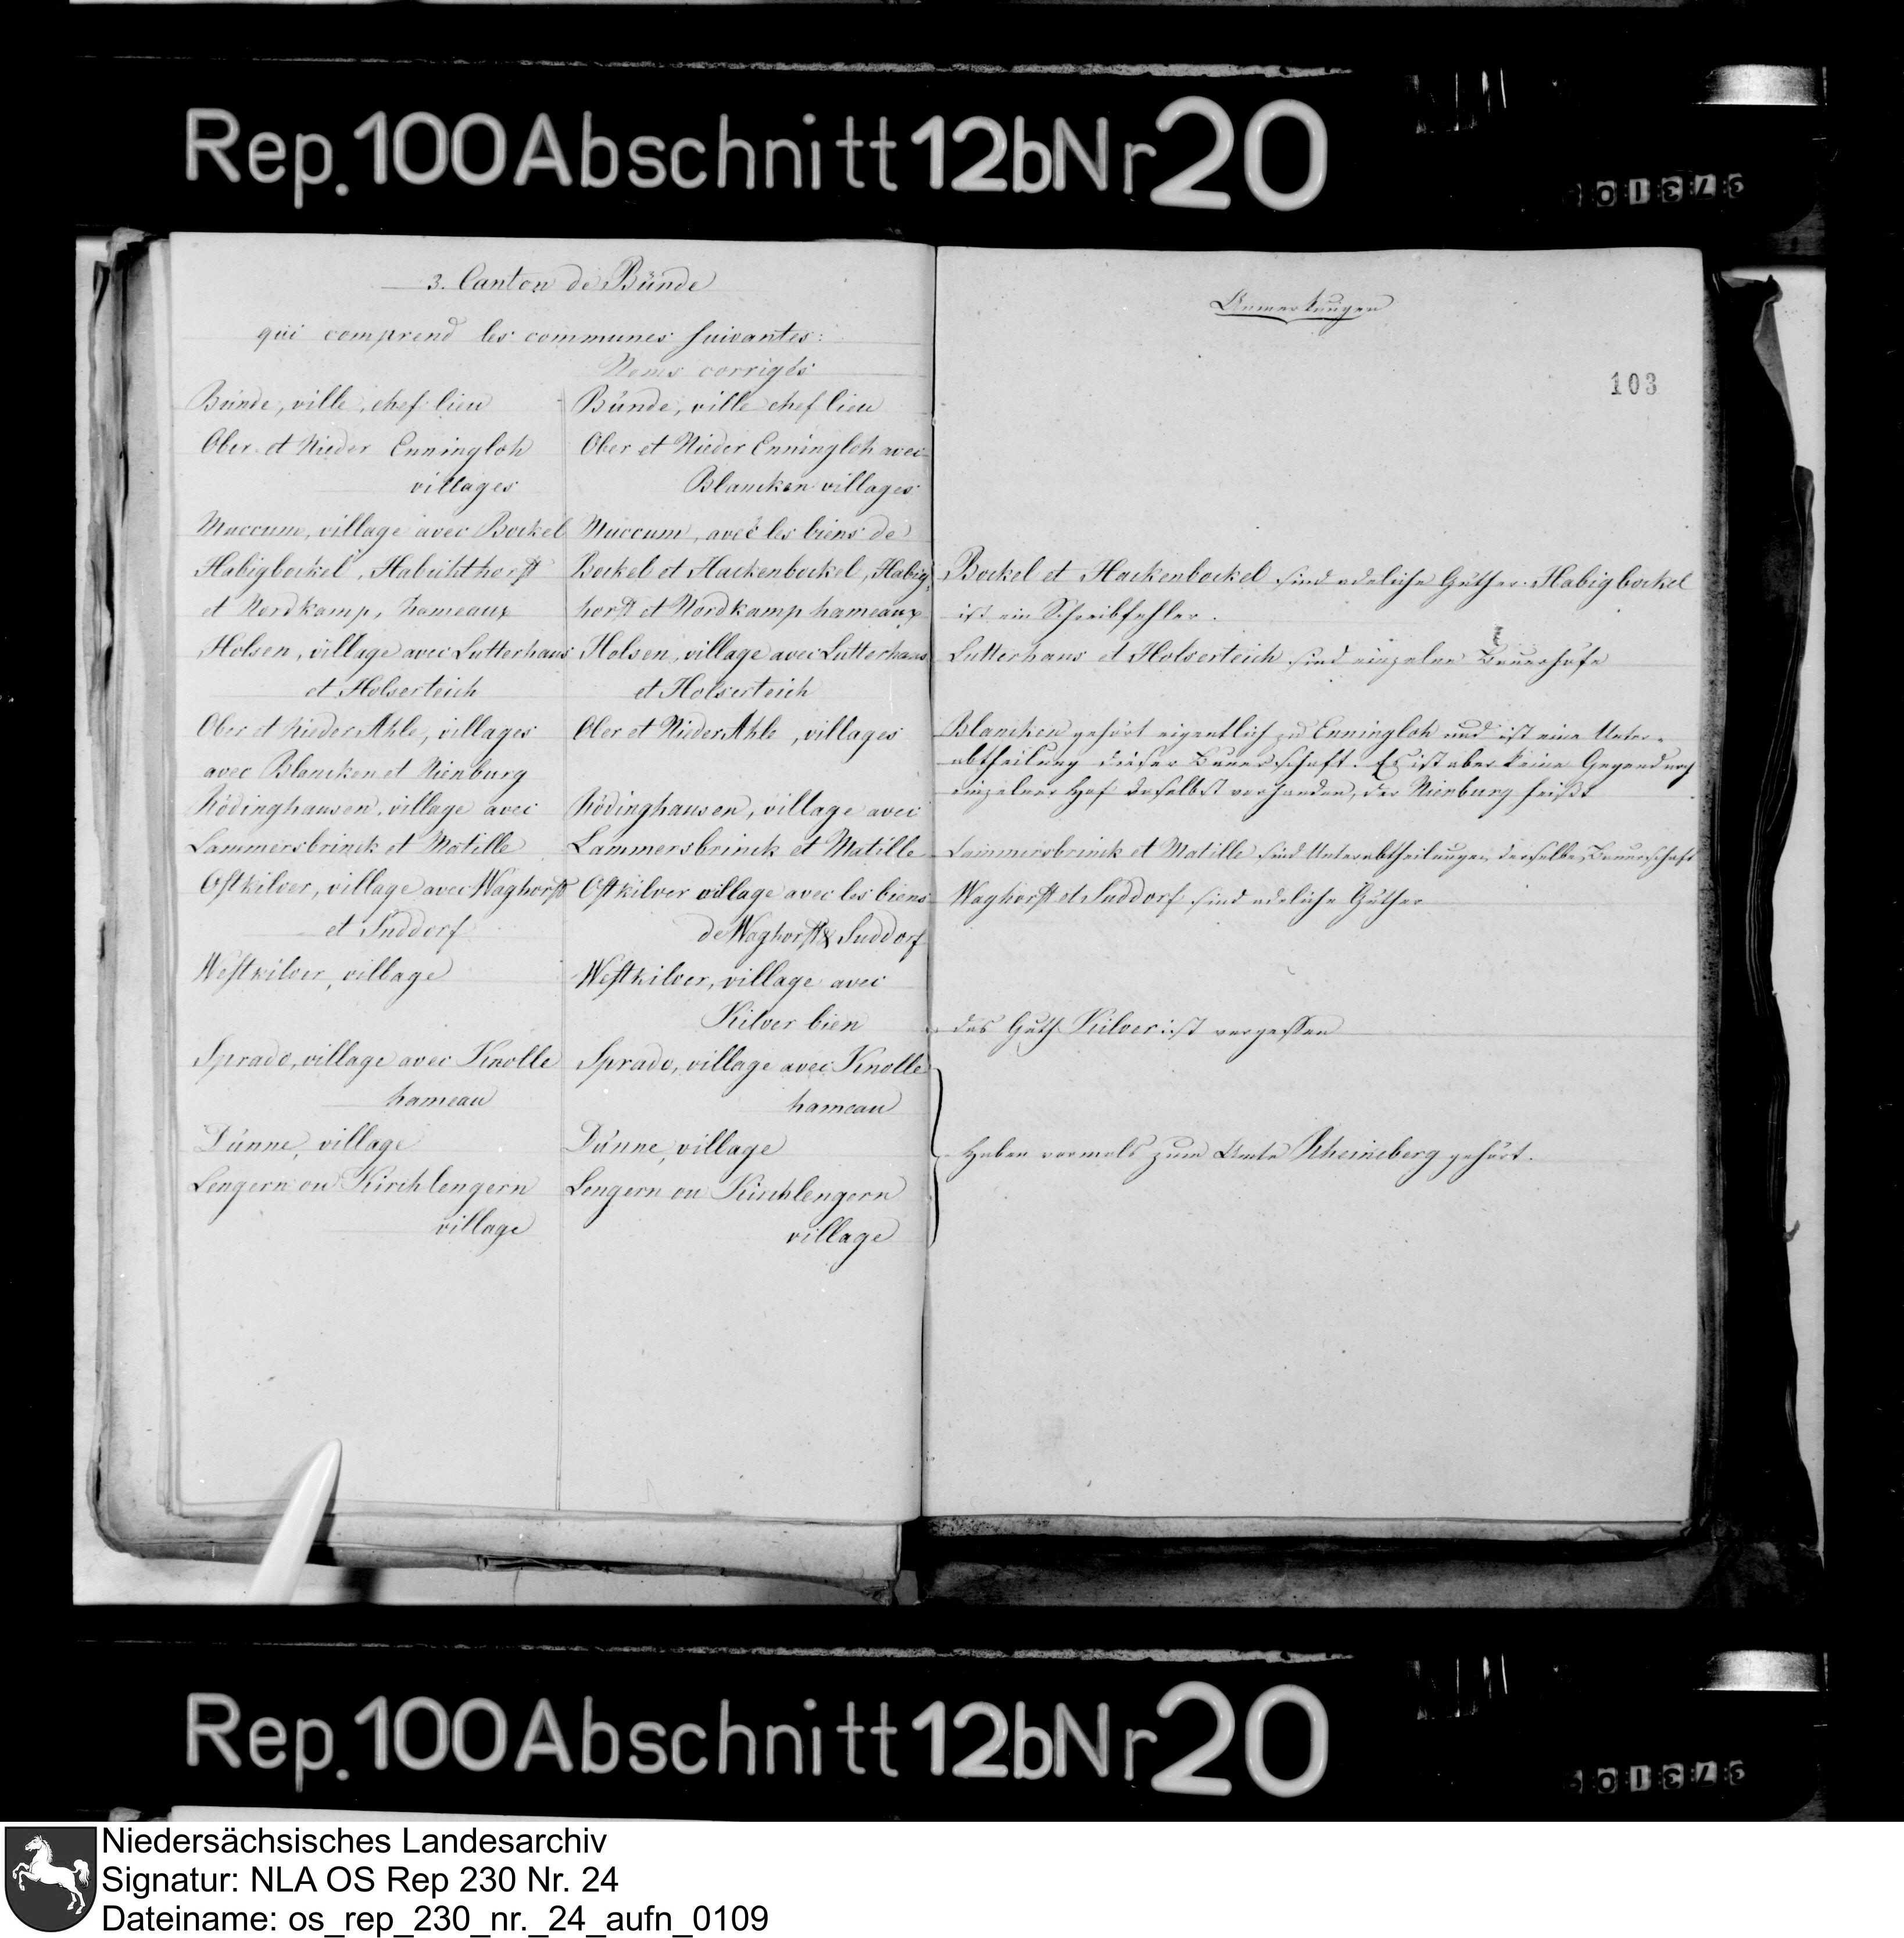 Rep. 100 Abschnitt 12b Nr 20
3. Canton de Bünde
qui comprend les communes suivantes:
Noms corrigés
Bünde, ville, chef lieu
Ober et Nieder Enningloh
villages
Muccum, village avec Bockel
Habigbockel, Habichthorst
et Nordkamp, hameaux
Holsen, village avec Lutterhaus
et Holserteich
Ober et Nieder Ahle, villages
avec Blancken et Nienburg
Rödinghausen, village avec
Lammersbrinck et Matille
Ostkilver, village avec Waghorst
et Suddorf
Westkilver, village
Sprado, village avec Knolle
hameau
Dünne, village
Lengern ou Kirchlengern
village
Bünde, ville chef lieu
Ober et Nieder Enningloh avec
Blancken villages
Muccum, avec les biens de
Bockel et Hackenbockel, Habig-
horst et Nordkamp hameaux
Holsen, village avec Lutterhaus
et Holserteich
Ober et Nieder Ahle, villages
Rödinghausen, village avec
Lammersbrinck et Matille
Ostkilver village avec les biens
de Waghorst & Suddorf
Westkilver, village avec
Kilver bien
Sprado, village avec Knolle
hameau
Dünne, village
Lengern ou Kirchlengern
village
Anmerkungen
103
Bockel et Hackenbockel sind adeliche Güther. Habigbockel
ist ein Schreibfehler.
Lutterhaus et Holserteich sind einzelne Bauerhöfe
Blancken gehört eigentlich zu Enningloh und ist eine Unter-
abtheilung dieser Bauerschaft. Es ist aber keine Gegend noch
einzelner Hof daselbst vorhanden, der Nienburg heißt
Lammersbrinck et Matille sind Unterabtheilungen derselben Bauerschaft
Waghorst et Suddorf sind adeliche Güther
das Guth Kilver ist vergessen
Haben vormals zum Amte Rheineberg gehört.
Rep. 100 Abschnitt 12b Nr 20
Niedersächsisches Landesarchiv
Signatur: NLA OS Rep 230 Nr. 24
Dateiname: os_rep_230_nr._24_aufn_0109